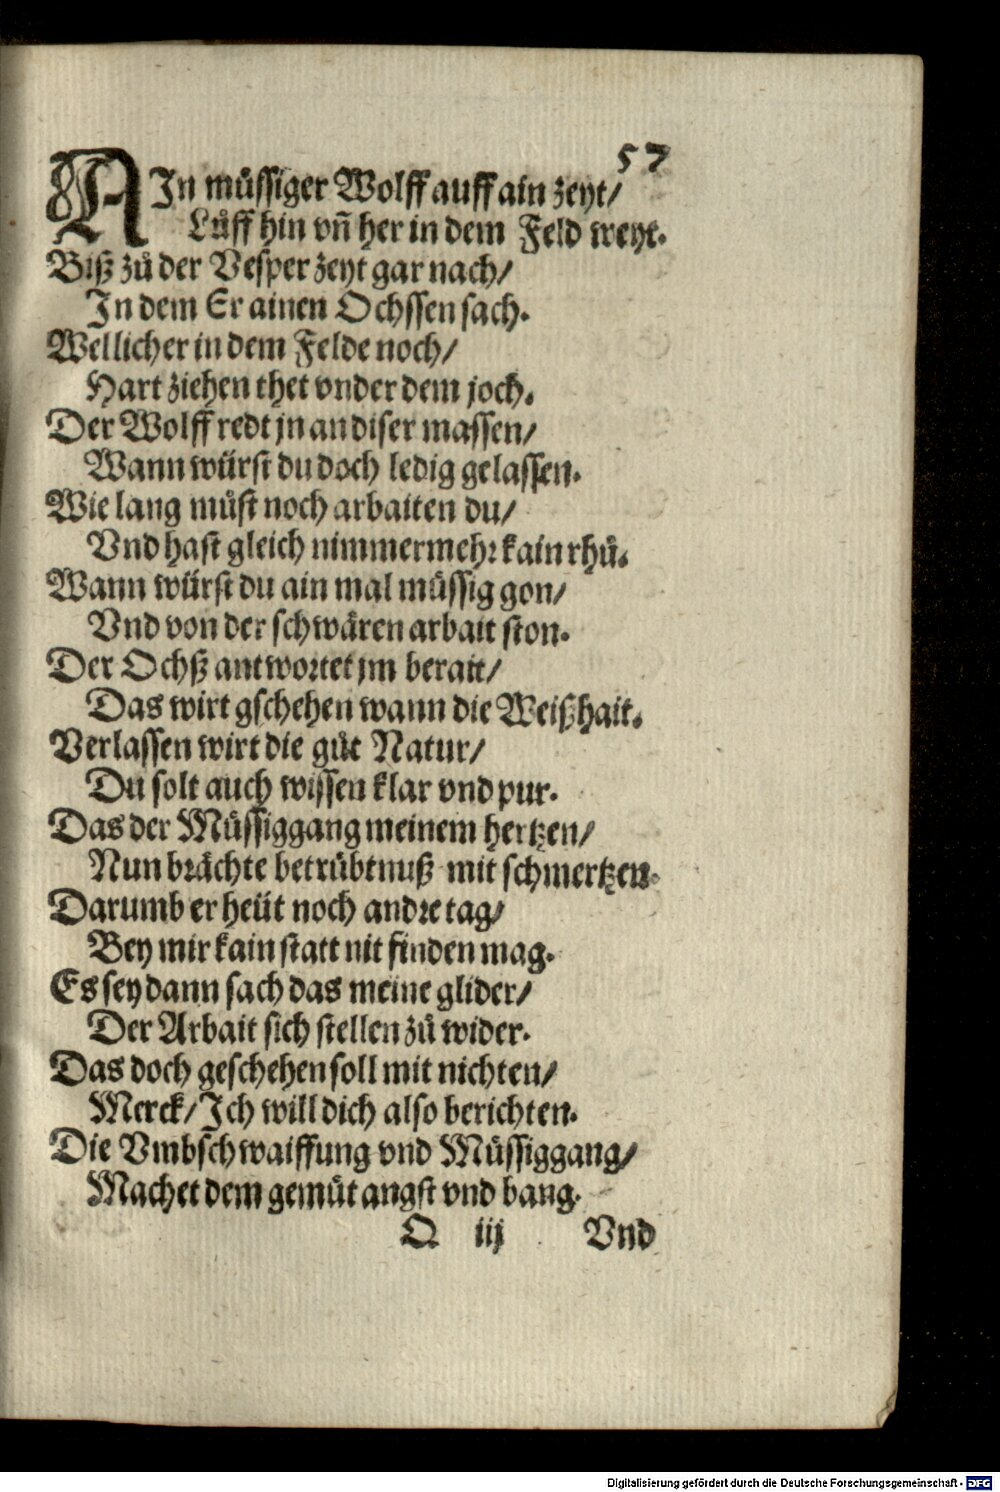 57
AIn müssiger Wolff auff ain zeyt/
Lůff hin vñ her in dem Feld weyt.
Biß zů der Vesper zeyt gar nach/
In dem Er ainen Ochssen sach.
Wellicher in dem Felde noch/
Hart ziehen thet vnder dem joch.
Der Wolff redt jn an diser massen/
Wann würst du doch ledig gelassen.
Wie lang můst noch arbaiten du/
Vnd hast gleich nimmermehr kain rhů.
Wann würst du ain mal müssig gon/
Vnd von der schwären arbait ston.
Der Ochß antwortet jm berait/
Das wirt gschehen wann die Weißhait.
Verlassen wirt die gůt Natur/
Du solt auch wissen klar vnd pur.
Das der Müssiggang meinem hertzen/
Nun brächte betrübtnuß mit schmertzen.
Darumb er heüt noch andre tag/
Bey mir kain statt nit finden mag.
Es sey dann sach das meine glider/
Der Arbait sich stellen zů wider.
Das doch geschehen soll mit nichten/
Merck/Ich will dich also berichten.
Die Vmbschwaiffung vnd Müssiggang/
Machet dem gemüt angst vnd bang.
O iij Vnd
Digitalisierung gefördert durch die Deutsche Forschungsgemeinschaft - DFG